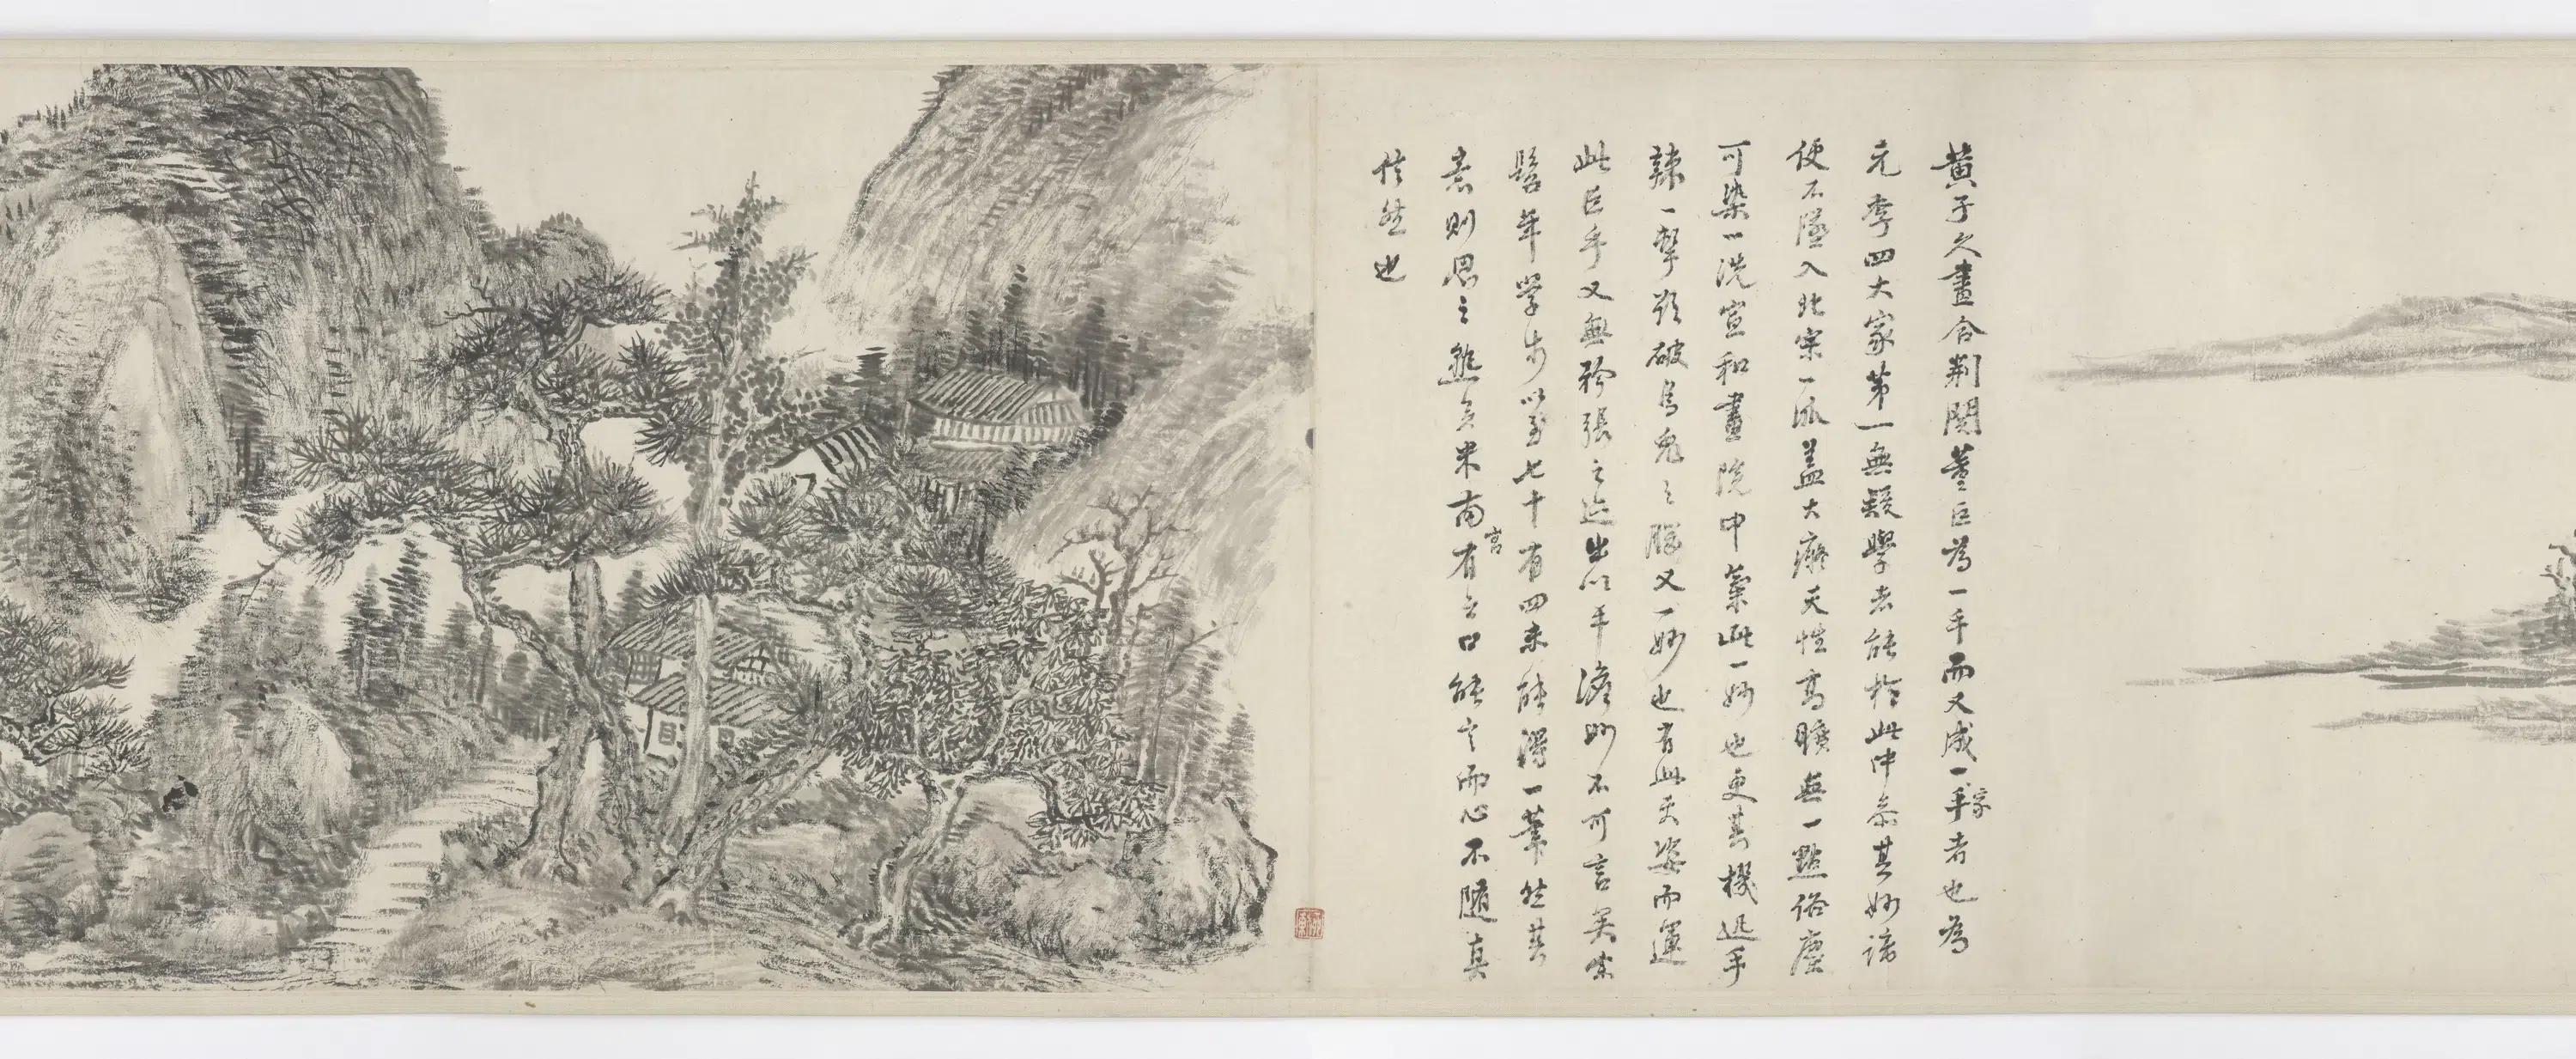 黃子久畫合荆関董巨為一手而又成一家手者也為
元季四大家第一無疑學者能於此中参其妙諦
便不墜入北宗一派蓋大癡天性高曠無一點俗塵
可染一洗宣和畫院中藁此一妙也更其機迅手
辣一擊踣破烏兔之膽又一妙也有此天姿而運
此巨手又無矜張之迹出以平澹此不可言矣余
髫年學步以至七十有四未能得一筆然其
意則思之熟矣米南宮有云口能言而心不隨真
信然也